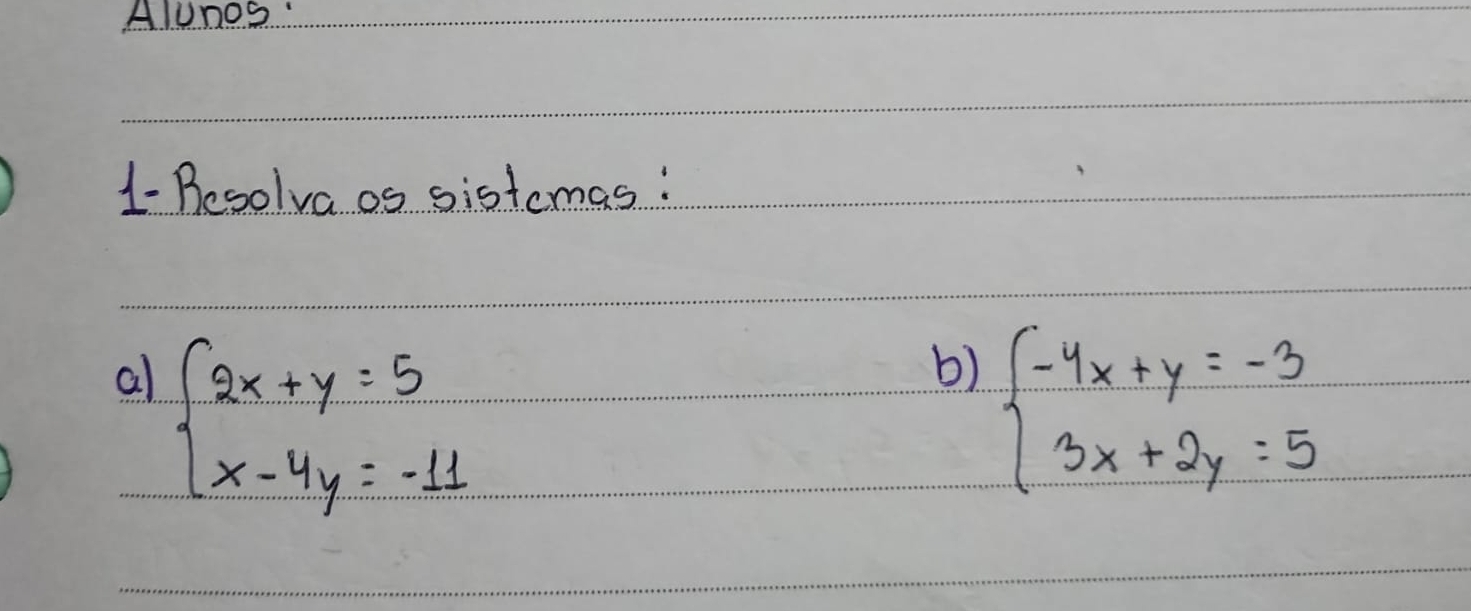 Alunos:
1- Resolva os sistemas:
a) { 2x + y = 5
x - 4y = -11
b) { -4x + y = -3
3x + 2y = 5